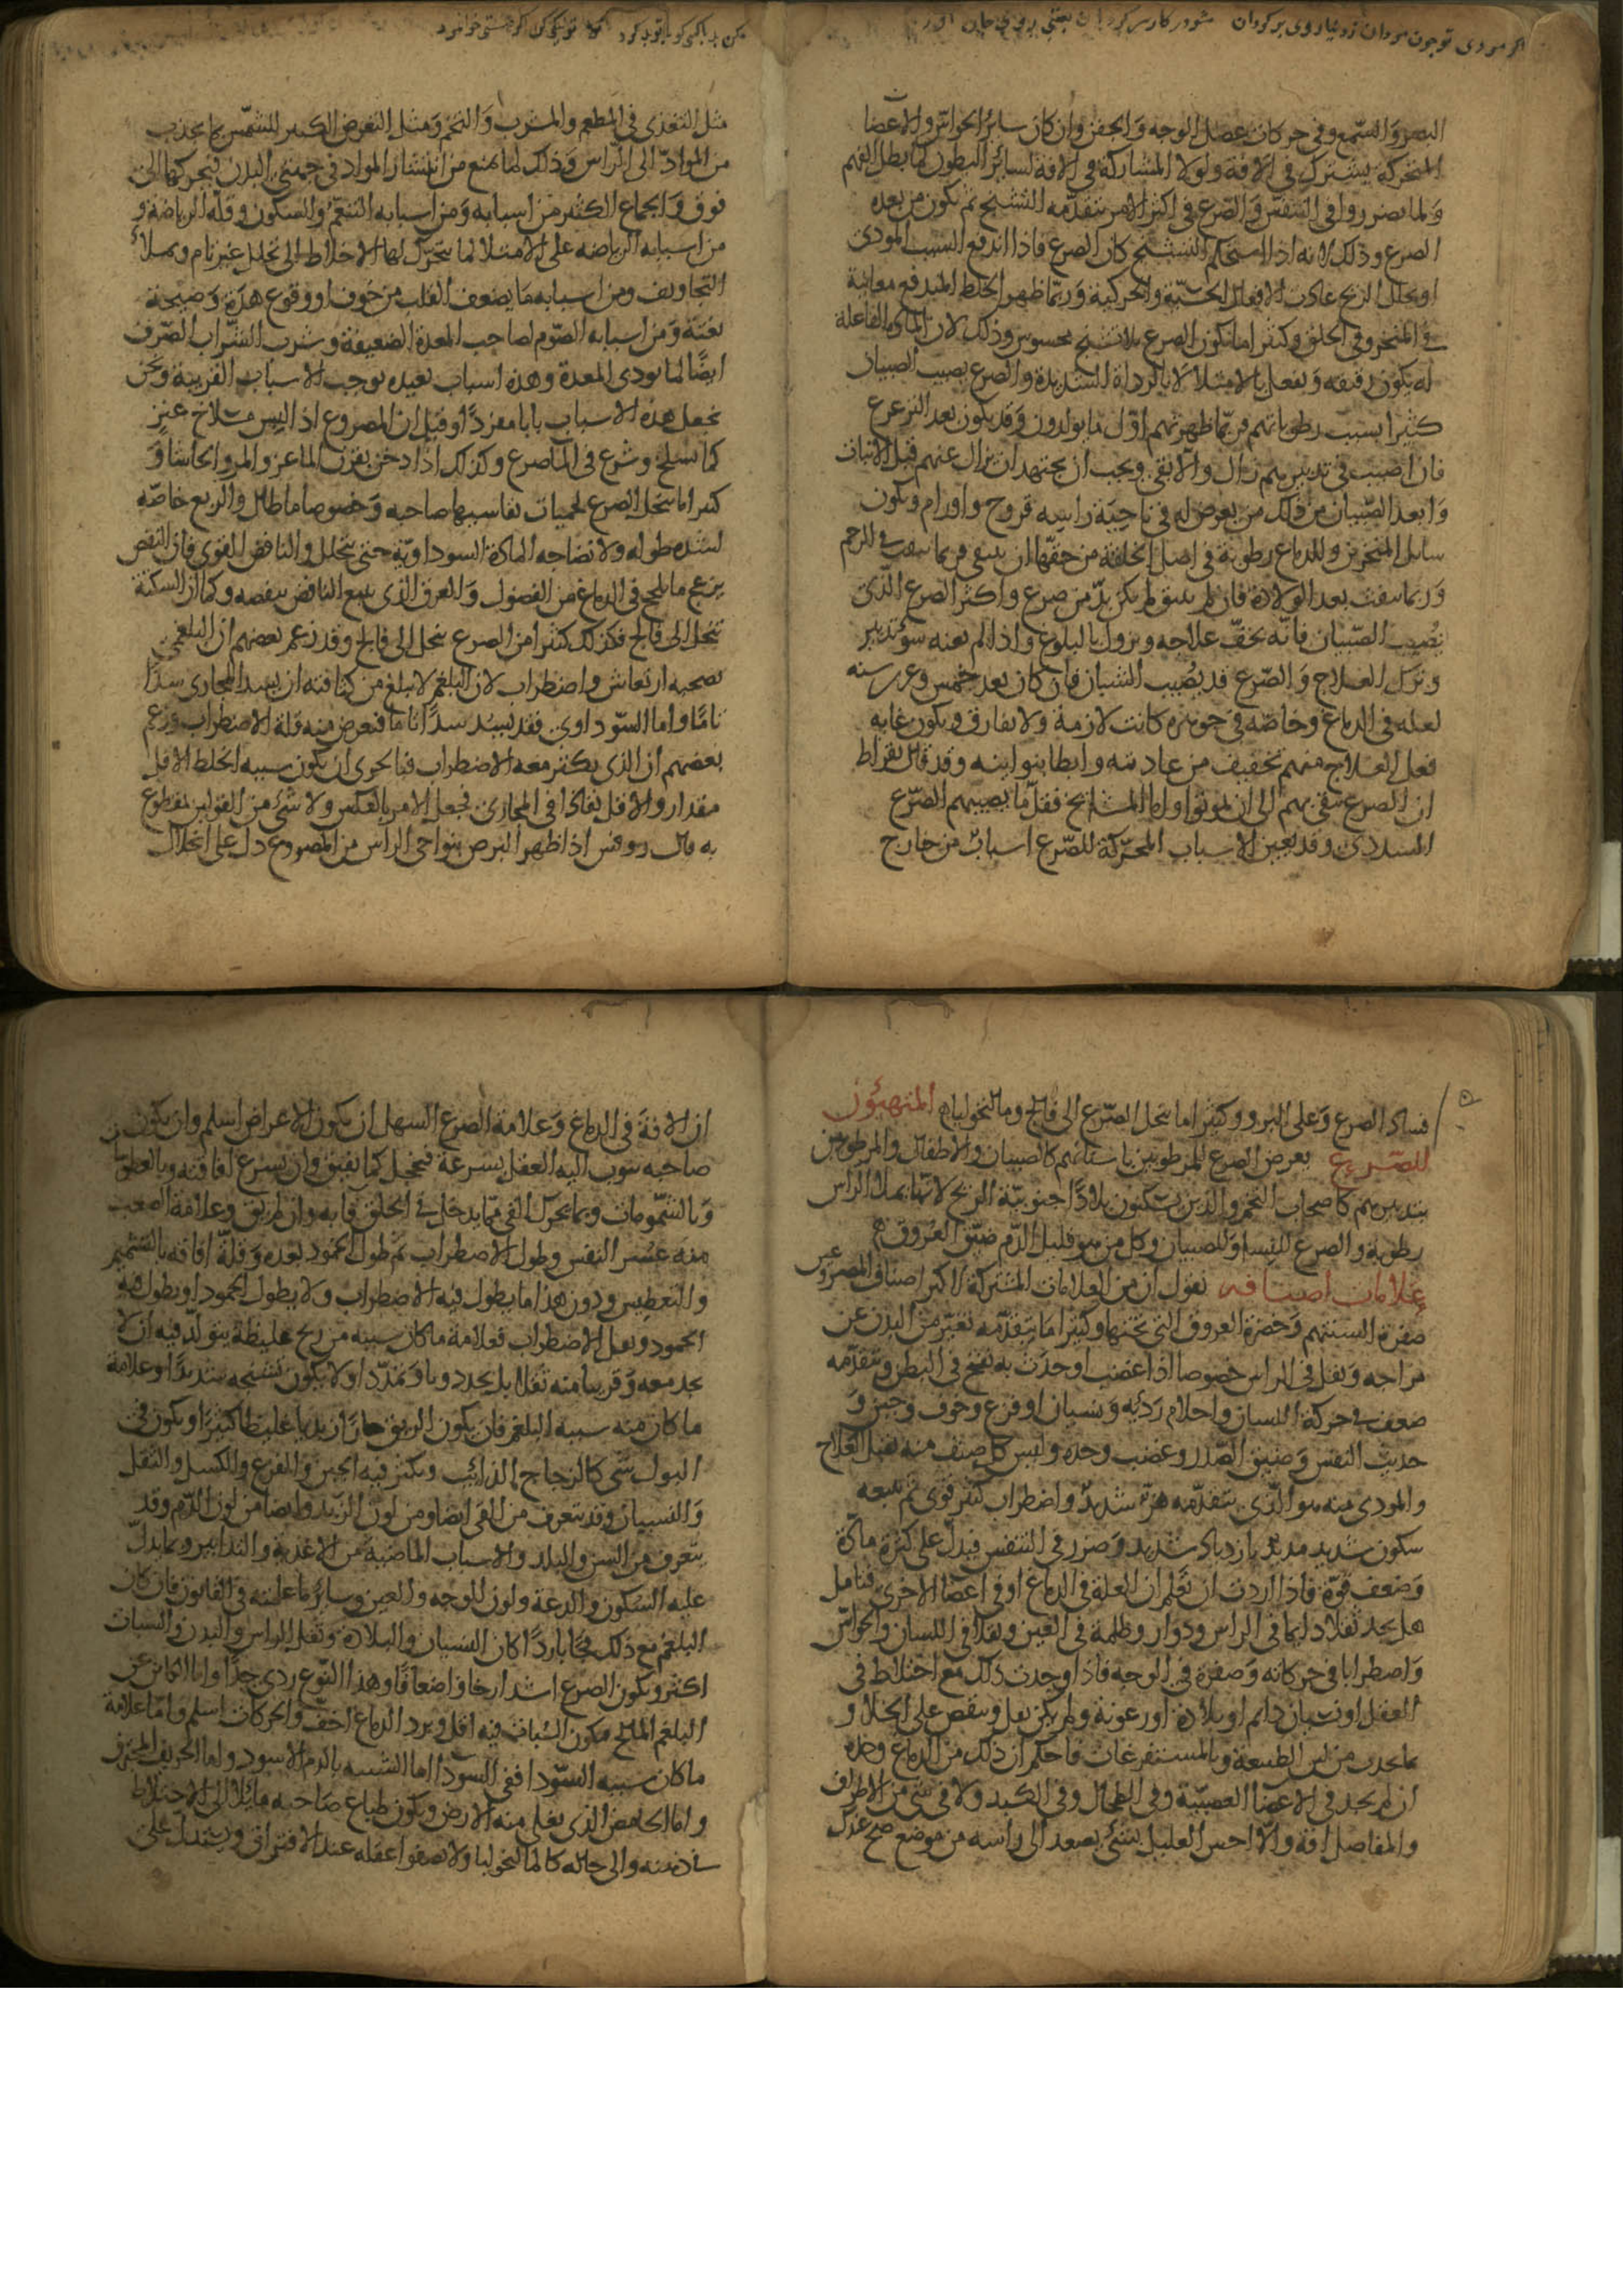 اكر مردى تو چون مردان ز دنيا روى بر كردان
البصر والسّمع وفى حركات عضل الوجه والجفن وان كان سائر الحواسّ والاعضا
المتحركة يشترك فى الافة ولولا المشاركة فى الافة لسائر البطون لما بطل الفهم
ولما تضرروا فى التنفس والصّرع فى اكثر الامر يتقدّمه التشنج ثم يكون من بعده
الصرع وذلك لانه اذا استحكم التشنج كان الصرع فاذا اندفع السبب المودى
او تحلل الريح عادت الافعال الحسّيّة والحركية وربّما ظهر الخلط المندفع معاينة
فى المنخر وفى الحلق وكثيرا ما يكون الصرع بلا تشنج محسوس وذلك لان المادة الفاعلة
له يكون رقيقه ويفعل بالامتلا لا بالرداة الشديدة والصرع يصيب الصبيان
كثيرا بسبب رطوباتهم فربّما ظهر بهم اوّل ما يولدون وقد يكون بعد الترعرع
فان اصيب فى تدبيرهم زال والّا بقى ويجب ان يجتهد ان يزال عنهم قبل الانبات
وابعد الصّبيان من ذلك من يعرض له فى ناحية راسه قروح واورام ويكون
سايل المنخرين وللدماغ رطوبة فى اصل الخلقة من حقّها ان ينقى فربما ينقت فى الرحم
وربّما نقت بعد الولادة فان لم ينق لم يكن بدّ من صرع واكثر الصرع الّذى
يُصيب الصّبيان فانّه يخفّ علاجه ويزول بالبلوغ واذا لم يعنه سوء تدبير
وترك العلاج والصّرع قد يُصيب الشبان فان كان بعد خمس وعشرين سنه
لعلة فى الدماغ وخاصّه فى جوهره كانت لازمة ولا يفارق ويكون غايه
فعل العلاج منهم تخفيف من عاديته وابطا بنوائبه وقد قال بقراط
ان الصرع يبقى بهم الى ان يموتوا واما المشايخ فقلّ ما يصيبهم الصّرع
السددى وقد يعين الاسباب المحرّكة للصّرع اسبابٌ من خارج
مثل التغذى فى المطعم والمشرب والتخم ومثل التعرض الكثير للشمس مما يجذب
من الموادّ الى الراس وذلك لما يمنع من انتشار المواد فى جهتى البدن فيحركها الى
فوق والجماع الكثير من اسبابه ومن اسبابه التنعّم والسكون وقلّة الرياضة و
من اسبابه الرياضه على الامتلا لما تتحرّك لها الاخلاط الى تحلل غير تام ويملأ
التجاويف ومن اسبابه ما يضعف القلب من خوف او وقوع هدّة وصيحة
بغتة ومن اسبابه الصّوم لصاحب المعدة الضعيفة وشرب الشّراب الصّرف
ايضًا لما يودى المعدة وهذه اسباب بعيده توجب الاسباب القريبة ونحن
نجعل هذه الاسباب بابا مفردًا وقيل ان المصروع اذا لبس مسلاخ عنز
كما سلخ وشرع فى الما صرع وكذلك اذا دخن بقرن الماعز والمر والحاشا و
كثيرا ما ينحل الصرع بحميات يقاسيها صاحبه وخصوصا ما طال والربع خاصّه
لشدة طوله ولانضاجه المادة السوداويّة حتى يتحلل والنافض القوى فان النفض
يزعج ما يلحج فى الدماغ من الفضول والعرق الذى يتبع النافض ينفضه وكما ان السكتة
تنحل الى فالج فكذلك كثيرا من الصرع ينحل الى فالج وقد زعم بعضهم ان البلغمى
يصحبه ارتعاش واضطراب لان البلغم لا يبلغ من كثافته ان يسد المجارى سدًّا
تامًّا واما السّوداوى فقد يسد سدًّا تامّا فيعرض منه قلة الاضطراب وزعم
بعضهم ان الذى يكثر معه الاضطراب فبالحرى ان يكون سببه الخلط الاقل
مقدار والاقل نفاذا فى المجارى فجعل الامر بالعكس ولا شئ من القولين بمقطوع
به قال روفس اذا ظهر البرص بنواحى الراس من المصروع دل على انحلال
فساد الصرع وعلى البرو وكثيرا ما ينحل الصّرع الى فالج ومالنخوليا المتهيّئون
للصّرع يعرض الصرع للمرطوبين باسنانهم كالصبيان والاطفال والمرطوبين
بتدبيرهم كاصحاب التخم والذين يسكنون بلادًا جنوبيّة الريح لانها تملأ الراس
رطوبة والصرع للنسا وللصبيان وكل من هو قليل الدّم ضيّق العروق
علامات اصنافه نقول ان من العلامات المشتركة لاكثر اصناف المصروعين
صفرة السنتهم وخضرة العروق التى تحتها وكثيرا ما يتقدّمه تغيّر من البدن عن
مزاجه وثقل فى الراس خصوصا اذا غضب او حدث به نفخ فى البطن ويتقدّمه
ضعف فى حركة اللسان واحلام رديّه ونسيان او فزع وخوف وجبن و
حديث النفس وضيق الصّدر وغضب وحده وليس كل صنف منه يقبل العلاج
والمودى منه هو الّذى يتقدّمه هزّ شديدٌ واضطراب كثير قوى ثم يتبعه
سكون شديد مديد بازدياد شديد وضرر فى التنفس فيدلّ على كثرة مادّة
وضعف قوّة فاذا اردت ان تعلم ان العلة فى الدماغ او فى اعضا الاخرى فتامل
هل يجد ثقلا دايما فى الراس ودوار وظلمة فى العين وثقلا فى اللسان والحواسّ
واضطرابا فى حركاته وصفرة فى الوجه فاذا وجدت ذلك مع اختلاط فى
العقل او نسيان دائم او بلادة او رعونة ولم يكن يقل وينقص على الخلا و
بما يحدث من لين الطبيعة وبالمستفرغات فاحكم ان ذلك من الدماغ وحده
ان لم يجد فى الاعضا العصبيّة وفى الطحال وفى الكبد ولا فى شئ من الاطراف
والمفاصل افة والّا احس العليل بشئ يصعد الى راسه من موضع صح عندك
ان الافة فى الدماغ وعلامة الصرع السهل ان يكون الاعراض اسلم وان يكون
صاحبه يثوب اليه العقل بسرعة فيخجل كما يفيق وان يسرع افاقته بالعطوسا
وبالشمّومات وبما يحرك القى ممّا يدخل فى الحلق قا به وان لم يق وعلامة الصعب
منه عسر النفس وطول الاضطراب ثم طول الخمود بعده وقلّة افاقه بالتشميم
والتعطيس ودون هذا ما يطول فيه الاضطراب ولا يطول الخمود او يطول فيه
الخمود ويقل الاضطراب فعلامة ما كان سببه من ريح غليظة يتولّد فيه ان لا
يجد معه وقريبا منه ثقلا بل يجد دويا وتمدّدا ولا يكون تشنجه شديدًا وعلامة
ما كان منه سببه البلغم فان يكون الريق حارا زبديا غليظا كثيرا ويكون فى
البول شى كالزجاج الذائب ويكثر فيه الجبن والفزع والكسل والثقل
والنسيان وقد يتعرف من القى ايضا ومن لون الزبد وايضا من لون الدّم وقد
يتعرف من السن والبلد والاسباب الماضية من الاغذية والتدابير ومما يدلّ
عليه السكون والدعة ولون الوجه والعين وساير ما علمته فى القانون فان كان
البلغم مع ذلك فجًّا باردًا كان النسيان والبلادة وثقل الراس والبدن والسبات
اكثر ويكون الصرع اشد ارخا واضعافًا وهذا النّوع ردى جدًّا واما الكائن عن
البلغم المالح فيكون السّبات فيه اقل وبرد الدماغ اخفّ والحركات اسلم وامّا علامة
ما كان سببه السّودا فقى السّودا اما الشبيه بالدم الاسود واما الحريف المحترق
واما الحامض الذى يغلى منه الارض ويكون طباع صاحبه مايلا الى الاختلاط
فى ذهنه والى حاله كالمالنخوليا ولا يصفوا عقله عند الافتراق ويستدلّ على